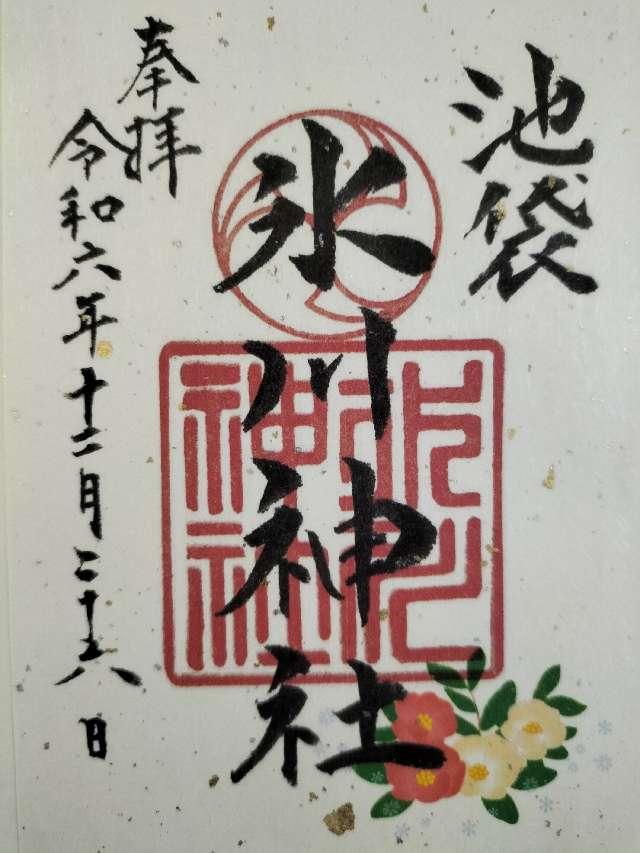 池袋
氷川神社
奉拝
令和六年十二月二十八日